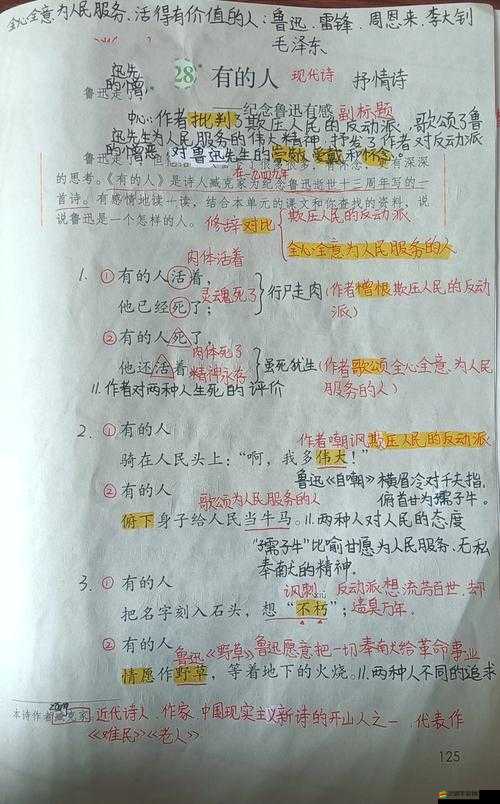 全心全意为人民服务、活得有价值的人：鲁迅、雷锋、周恩来、李大钊
毛泽东
28 有的人 现代诗 抒情诗
——纪念鲁迅有感 副标题
中心：作者批判了欺压人民的反动派，歌颂了鲁
迅先生为人民服务的伟大精神，抒发了作者对反动派
的憎恶，对鲁迅先生的崇敬、爱戴和怀念。
在一九四九年
的思考。《有的人》是诗人臧克家为纪念鲁迅逝世十三周年写的一
首诗。有感情地读一读，结合本单元的课文和你查找的资料，说
说鲁迅是一个怎样的人。
修辞 对比
欺压人民的反动派
全心全意为人民服务的人
肉体活着
1. ①有的人活着，
灵魂死了
他已经死了；
行尸走肉(作者憎恨欺压人民的反动
派)
②有的人死了，
肉体死了
他还活着
精神永存
虽死犹生(作者歌颂全心全意为人民
服务的人)
11.作者对两种人生死的评价
2. ①有的人
作者嘲讽欺压人民的反动派
骑在人民头上：“啊，我多伟大！”
鲁迅《自嘲》横眉冷对千夫指，
俯首甘为孺子牛。
②有的人
歌颂为人民服务的人
俯下身子给人民当牛马。11.两种人对人民的态度
“孺子牛”比喻甘愿为人民服务、无私
奉献的精神.
3. ①有的人
讽刺
反动派想流芳百世，却
遗臭万年.
把名字刻入石头，想“不朽”；
②有的人
鲁迅《野草》鲁迅愿意把一切奉献给革命事业
情愿作野草，等着地下的火烧。11.两种人不同的追求
本诗作者臧克家
近代诗人、作家 中国现实主义新诗的开山人之一、代表作
《难民》《老人》
125